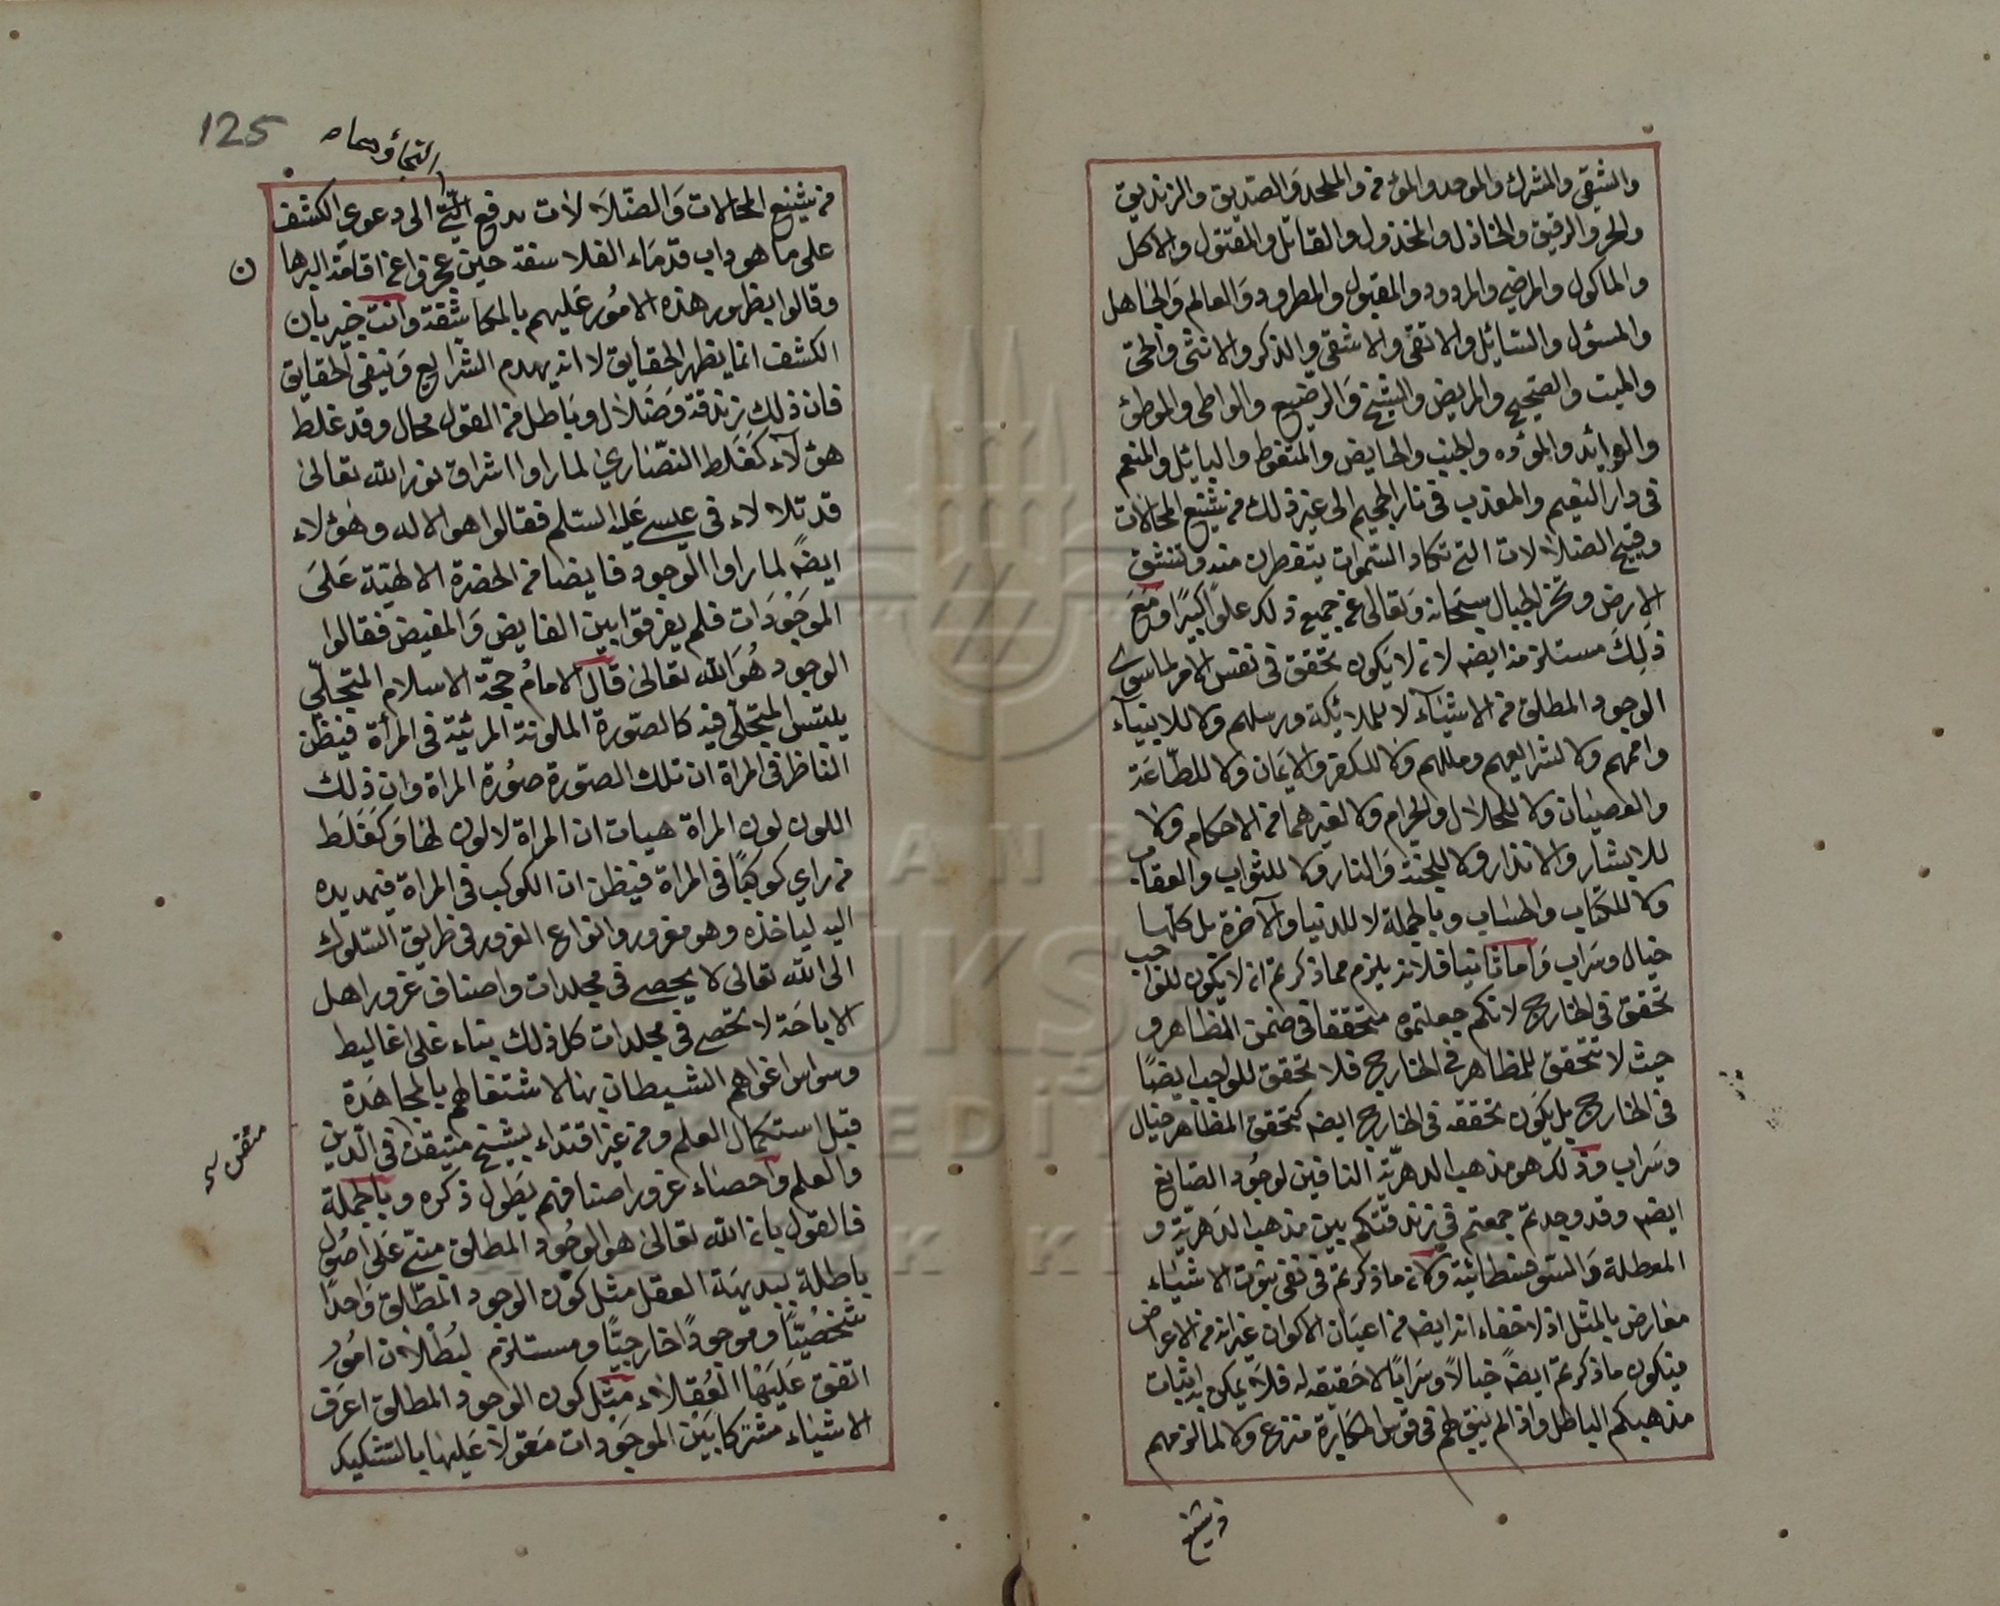 والشقي والمشرك والموحد والمؤمن والملحد والصديق والزنديق
والحر والرقيق والخاذل والمخذول والقاتل والمقتول والآكل
والماكول والمرضي والمردود والمقبول والمطرود والعالم والجاهل
والمسؤل والسائل والاتقى والاشقى والذكر والانثى والحي
والميت والصحيح والمريض والشيخ والرضيع والواطي والموطؤ
والوائد والموؤده والجنب والحايض والمتغوط والبائل والمنعم
في دار النعيم والمعذب في نار الجحيم الى غير ذلك من شنيع المحالات
وقبيح الضلالات التي تكاد السموات يتفطرن منه وتنشق
الارض وتخر الجبال سبحانه وتعالى عن جميع ذلك علوا كبيرا ومع
ذلك مستلزمة ايضه لانه لا يكون تحقق في نفس الامر لما سوى
الوجود المطلق من الاشياء لا للملائكة ورسلهم ولا للانبياء
واممهم ولا لشرايعهم ومللهم ولا للكفر والايمان ولا للطاعة
والعصيان ولا للحلال والحرام ولا لغيرهما من الاحكام ولا
للابشار والانذار ولا للجنة والنار ولا للثواب والعقاب
ولا للكتاب والحساب وبالجملة لا للدنيا والآخرة بل كلها
خيال وسراب واما ثانيا فلانه يلزم مما ذكرتم ان لا يكون للواجب
تحقق في الخارج لانكم جعلتموه متحققا في ضمن المظاهر و
حيث لا تتحقق للمظاهر في الخارج فلا تحقق للواجب ايضا
في الخارج بل يكون تحققه في الخارج ايضه كتحقق المظاهر خيال
وسراب وذلك هو مذهب الدهرية النافين لوجود الصانع
ايضه وقد وجدتم جمعتم في زندقتكم بين مذهب الدهرية و
المعطلة والسوفسطائية ولان ما ذكرتم في نفي ثبوت الاشياء
معارض بالمثل اذ لا خفاء انه ايضه من اعيان الاكوان غير انه من الاعراض
فيكون ما ذكرتم ايضه خيالا وسرابا لا حقيقه له فلا يمكن به اثبات
مذهبكم الباطل واذا لم يبق لهم في قوس المكابرة منزع ولا لما لزمهم
من شنيع
125
التجأوا
من شنيع المحالات والضلالات مدفع التجى الى دعوى الكشف
على ما هو داب قدماء الفلاسفة حين عجزوا عن اقامة البرها
ن
وقالوا بظهور هذه الامور عليهم بالمكاشفة وانت خبير بان
الكشف انما يظهر الحقايق لا انه يهدم الشرايع وينفي الحقايق
فان ذلك زندقة وضلال وباطل من القول محال وقد غلط
هؤلاء كغلط النصارى لما راوا اشراق نور الله تعالى
قد تلالاء في عيسى عليه السلم فقالوا هو الاله وهؤلاء
ايضه لما راوا الوجود فايضا من الحضرة الالهية على
الموجودات فلم يفرقوا بين الفايض والمفيض فقالوا
الوجود هو الله تعالى قال الامام حجة الاسلام المتجلي
يلتبس المتجلى فيه كالصورة الملونة المرئية في المرأة فيظن
الناظر في المراة ان تلك الصورة صورة المراة وان ذلك
اللون لون المراة هيهات ان المراة لا لون لها وكغلط
من راى كوكبا في المراة فيظن ان الكوكب في المراة فيمد يده
اليه لياخذه وهو مغرور وانواع الغرور في طريق السلوك
الى الله تعالى لا يحصى في مجلدات واصناف غرور اهل
الاباحة لا تحصى في مجلدات كل ذلك بناء على اغاليط
وسواس اغواهم الشيطان بها لاشتغالهم بالمجاهدة
قبل استكمال العلم ومن غير اقتداء بشيخ متيقن في الدين
متقن
والعلم واحصاء غرور اصنافهم يطول ذكره وبالجملة
فالقول بان الله تعالى هو الوجود المطلق مبني على اصول
باطلة ببديهة العقل مثل كون الوجود المطلق واحدا
شخصيا وموجودا خارجيا ومستلزم لبطلان امور
اتفق عليها العقلاء مثل كون الوجود المطلق اعرف
الاشياء مشتركا بين الموجودات مقولا عليها بالتشكيك